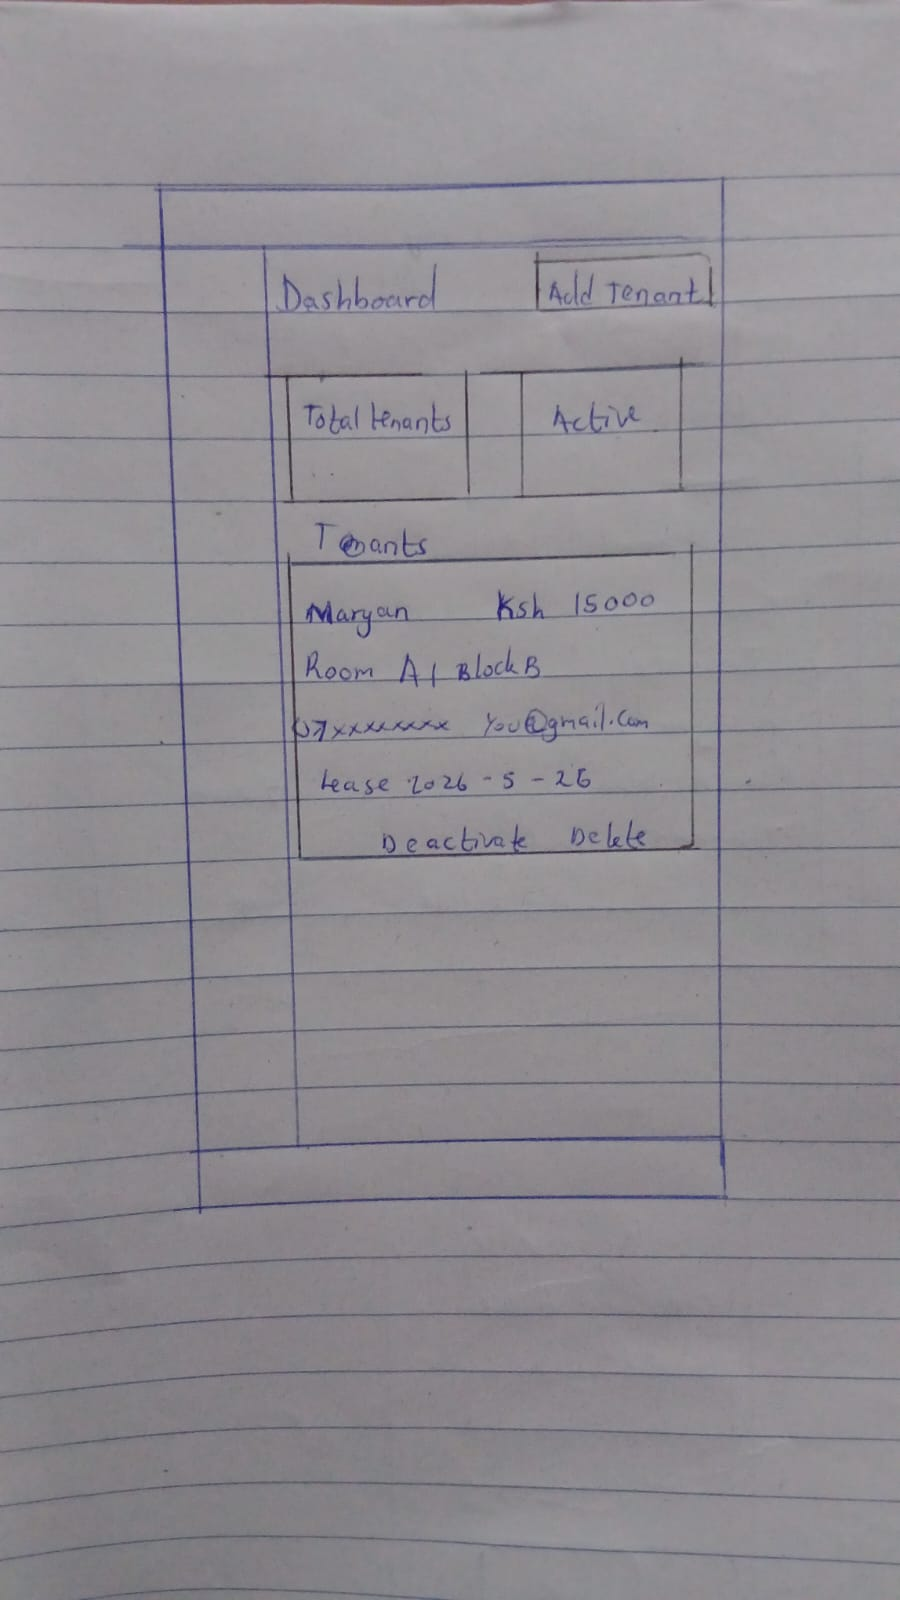 Dashboard Add Tenant
Total tenants Active
Tenants
Maryan Ksh 15000
Room A1 Block B
07xxxxxxxxx You@gmail.com
Lease 2026-5-26
Deactivate Delete